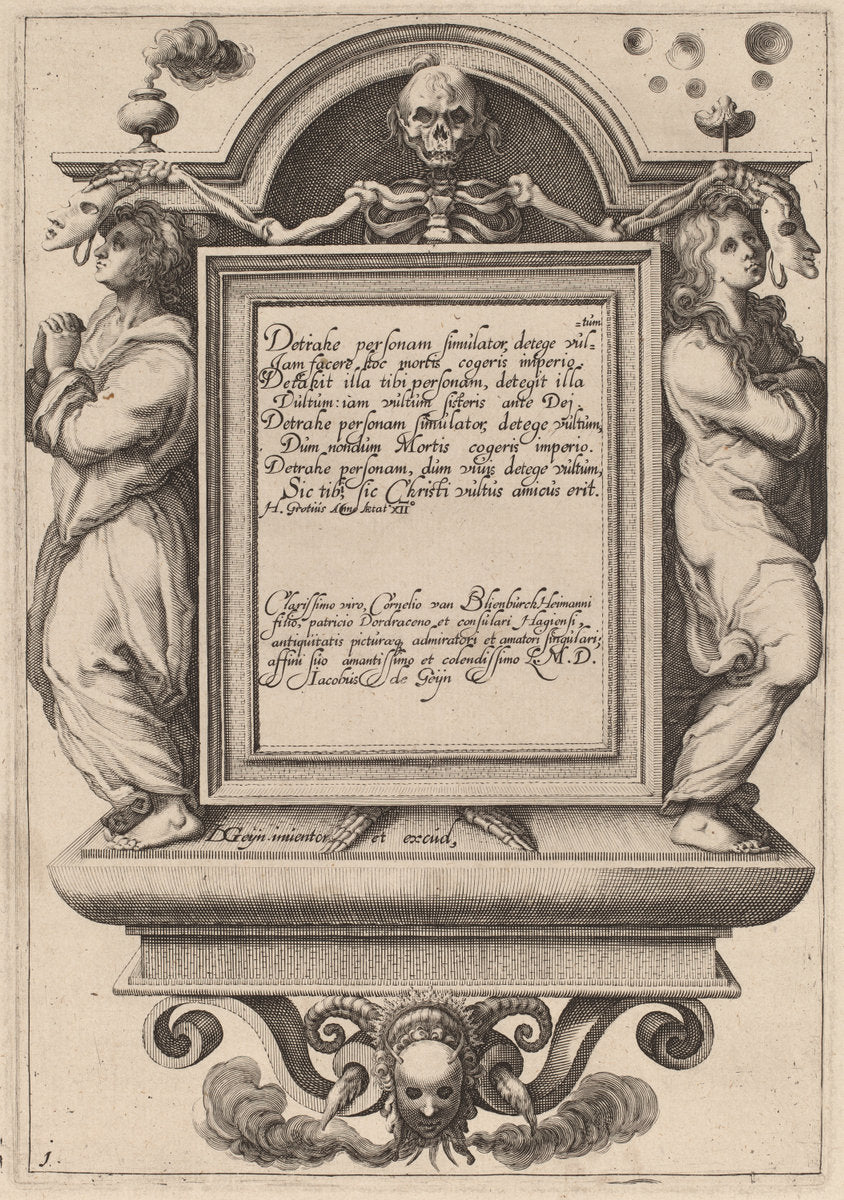 Detrahe personam simulator, detege vul=
=tum
Iam facere hoc mortis cogeris imperio.
Detrahit illa tibi personam, detegit illa
Vultum: iam vultum sisteris ante Dej.
Detrahe personam simulator, detege vultum,
Dum nondum Mortis cogeris imperio.
Detrahe personam, dum viuis detege vultum,
Sic tibi, sic Christi vultus amicus erit.
H. Grotius Anno Aetat XII°
Clarissimo viro, Cornelio van Blienburch Heimanni
filio, patricio Dordraceno et consulari Hagiensi,
antiquitatis picturaeq admiratori et amatori singulari,
affini suo amantissimo et colendissimo L. M. D.
Iacobus de Geijn
DGeijn inuentor et excud,
1.